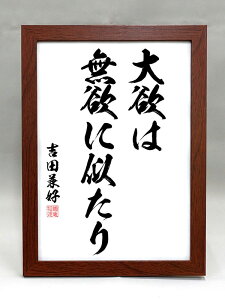 大欲は
無欲に似たり
吉田兼好